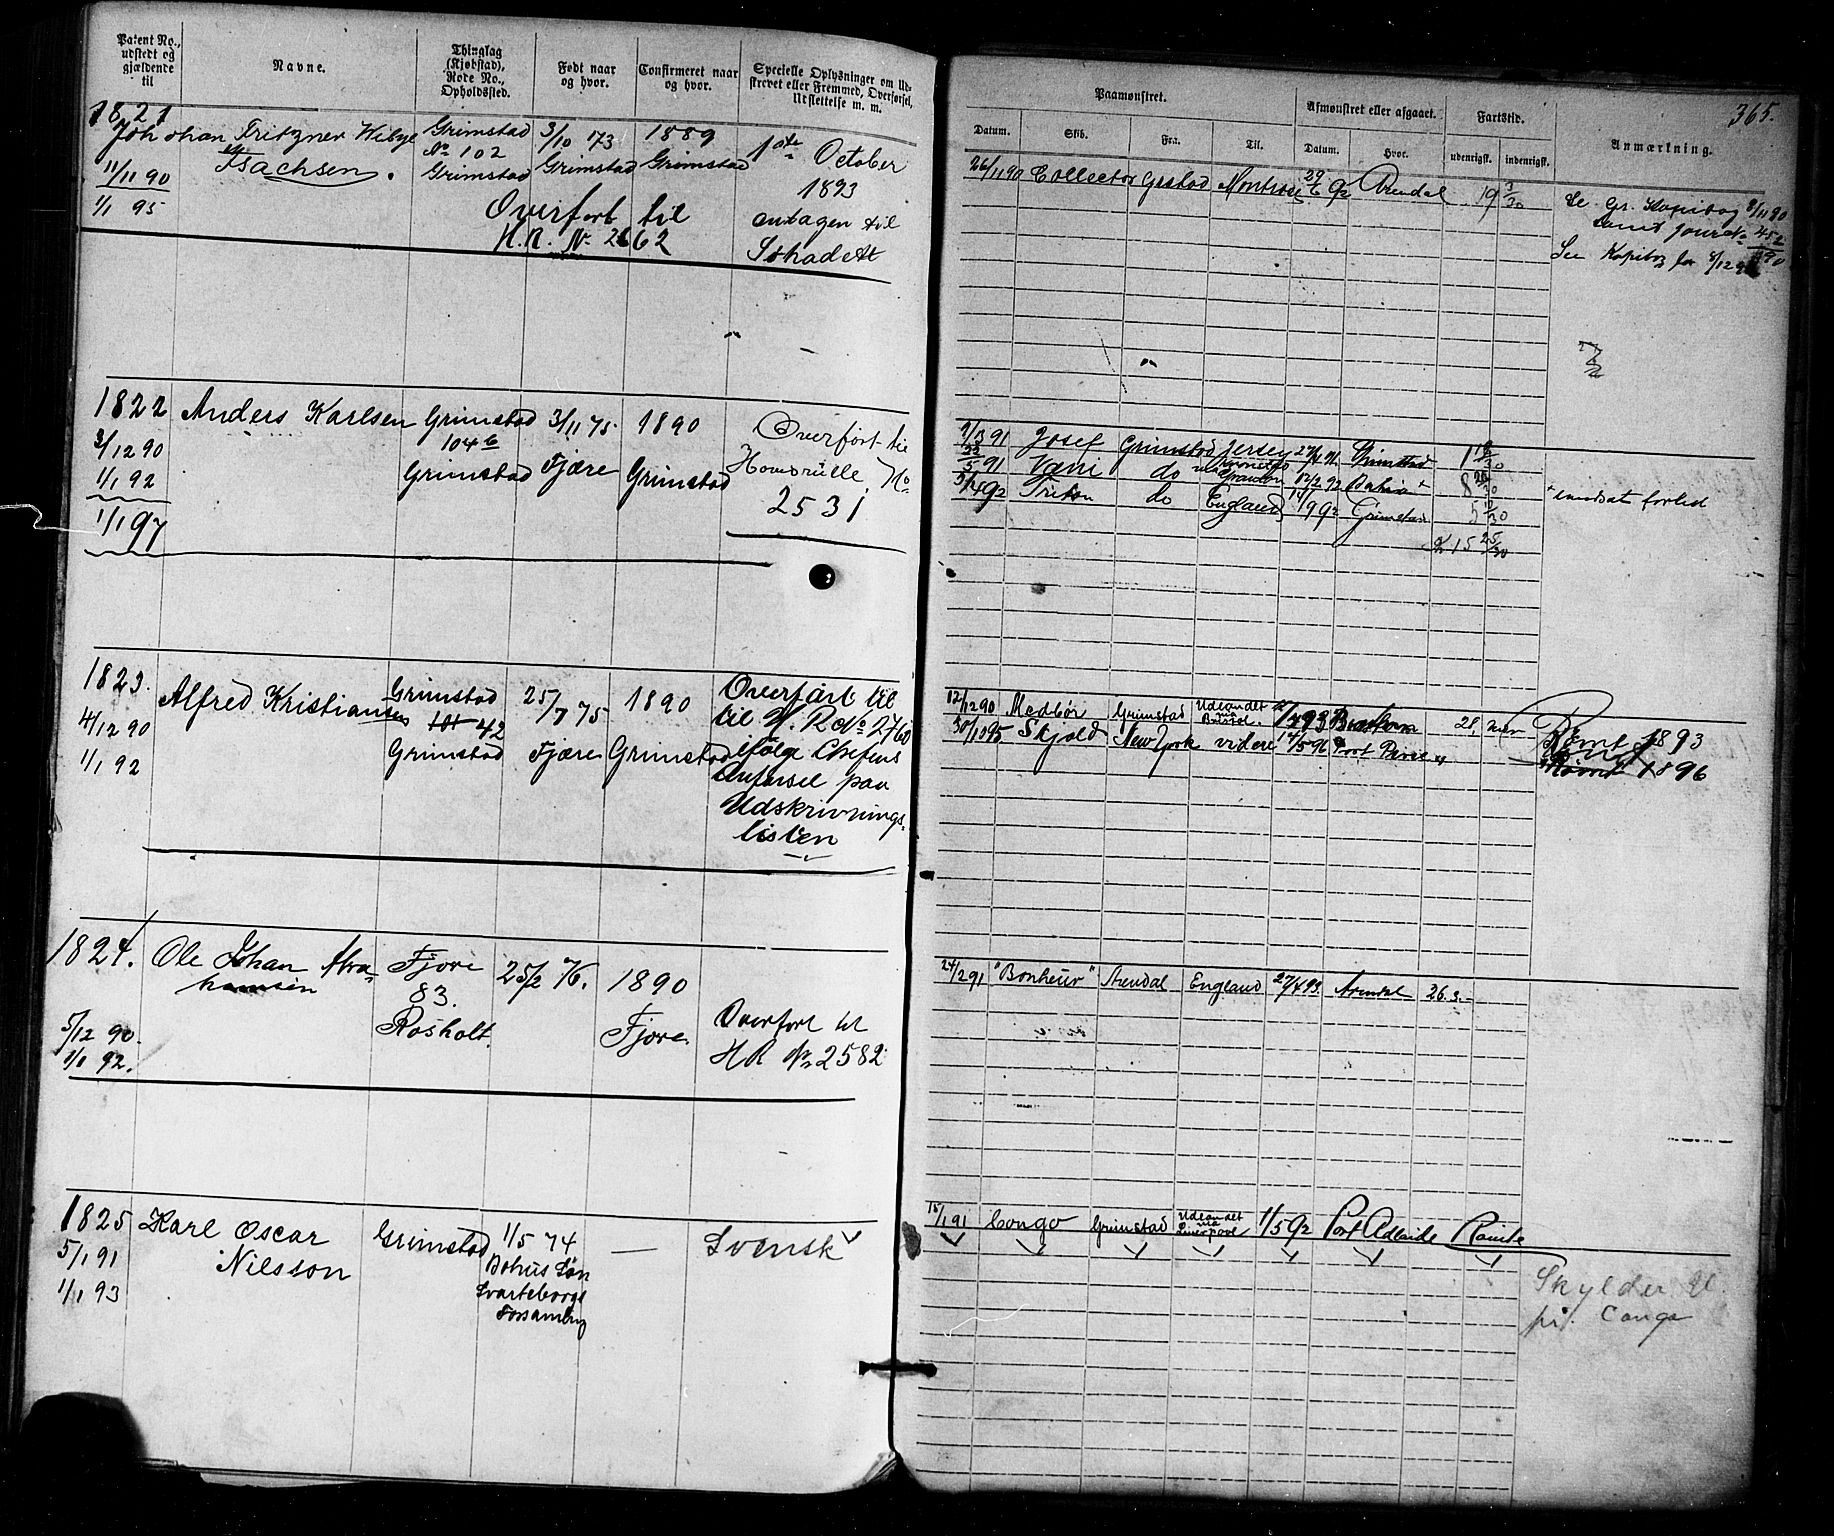 Patent No., udstedt og gjældende til
Navne.
Thinglag (Kjøbstad), Rode No., Opholdssted.
Født naar og hvor.
Confirmeret naar og hvor.
Specielle Oplysninger om Udskrevet eller Fremmed, Overførsel, Udslettelse m. m.
1821
Johan Fritzner Wibye
Isachsen.
11/11 90
1/1 95
Grimstad
No 102
Grimstad
3/10 73
Grimstad
1889
Grimstad
1ste October
1893
antagen til
Overført til
H.R. No. 2662
1822
Anders Karlsen
3/12 90
1/1 92
1/1 97
Grimstad
104 b
Grimstad
3/11 75
Fjære
1890
Grimstad
Overført til
Hovedrulle No
2531
1823.
Alfred Kristiansen
4/12 90
1/1 92
Grimstad
101 42
Grimstad
25/7 75
Fjære
1890
Grimstad
Overført til
til H. R No 2760
ifølge Chefens
Anførsel paa
Udskrivnings-
listen
1824.
Ole Johan Abra-
hamsen
5/12 90.
1/1 92.
Fjære
83.
Rosholt.
25/2 76.
1890
Fjære
Overført til
HR No 2582
1825
Karl Oscar
Nilsson
5/1 91
1/1 93
Grimstad
1/5 74
Bohus Län
Svarteborgs
Forsamling
—
Svensk
365.
Paamønstret.
Afmønstret eller afgaaet.
Fartstid.
Anmærkning.
Datum.
Skib.
Fra.
Til.
Datum.
Hvor.
udenrigsk.
indenrigsk.
26/11 90 Collector Grstad Montrose 29/6 92 Arendal 19 3/30
Se Gr. Kopibog 8/11 90
samt Jour No 452
See Kopibog for 8/12 90
7/3 91 Josef Grimstad Jersey 27/4 91 Grimstad
22/5 91 Væni do 12/2 92 Bahia +
5/4 92 Triton do England 14/9 92 Grimstad
+ forlod
15 25/30
12/12 90 Medbør Grimstad Udlandet 93
30/10 95 Skjold New York videre 14/5 96 Port Pirie
Rømt 1893
Rømt 1896
24/2 91 "Bonheur" Arendal England 27/4 93. Arendal 26.3.
15/1 91 Congo Grimstad Udlandet via Liverpool 1/5 92 Port Adelaide Rømte
Skylder
pr. Congo